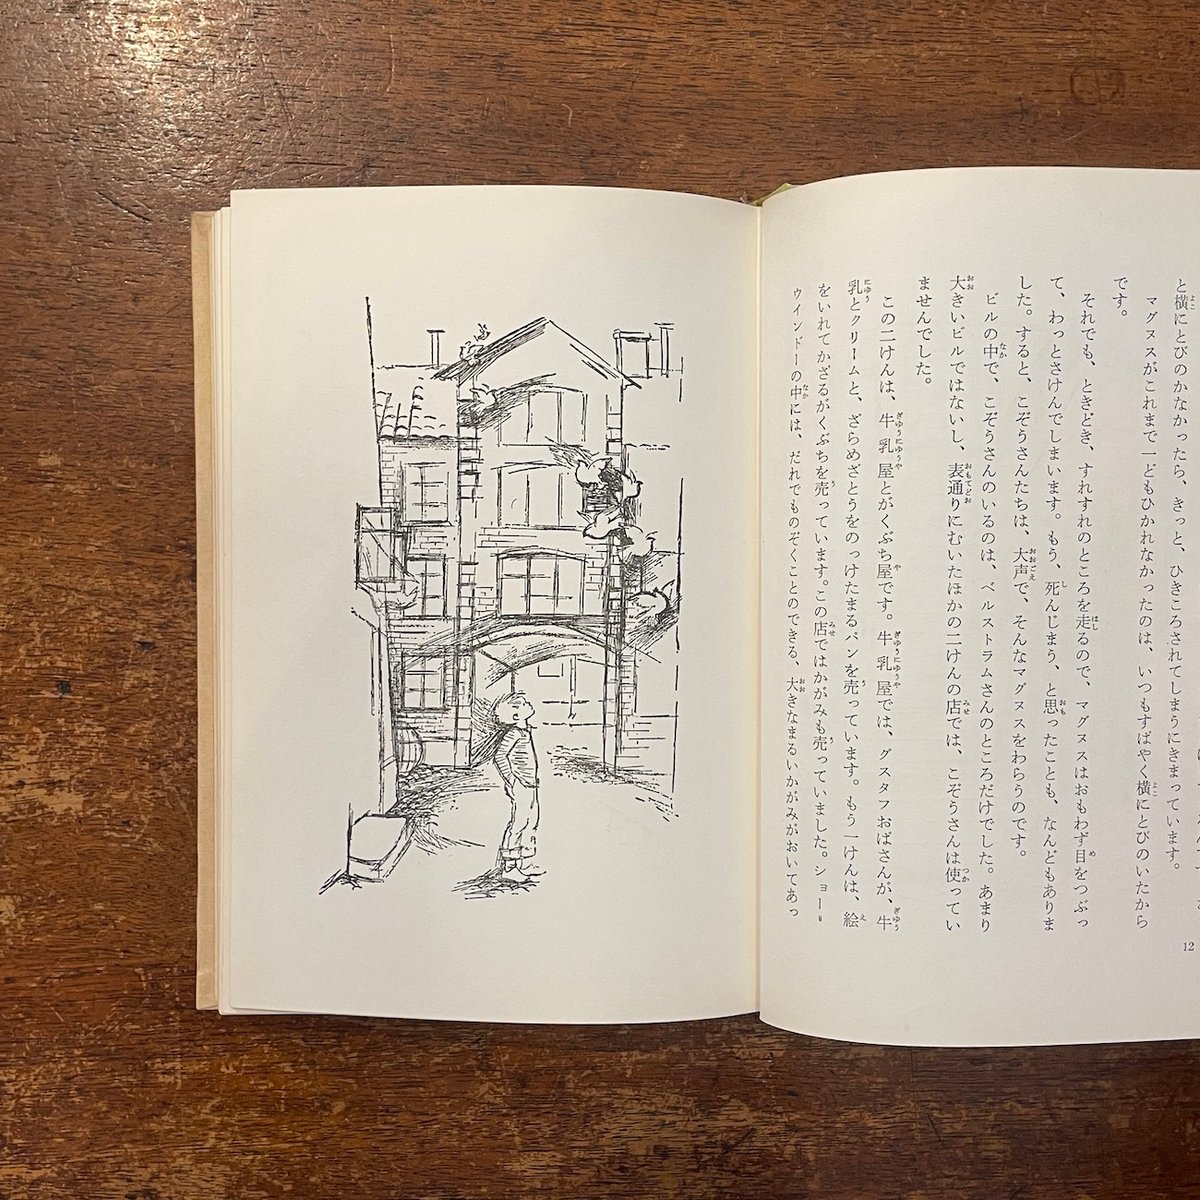 と横にとびのかなかったら、きっと、ひきころされてしまうにきまっています。
マグヌスがこれまで一どもひかれなかったのは、いつもすばやく横にとびのいたから
です。
それでも、ときどき、すれすれのところを走るので、マグヌスはおもわず目をつぶっ
て、わっとさけんでしまいます。もう、死んじまう、と思ったことも、なんどもありま
した。すると、こぞうさんたちは、大声で、そんなマグヌスをわらうのです。
ビルの中で、こぞうさんのいるのは、ベルストラムさんのところだけでした。あまり
大きいビルではないし、表通りにむいたほかの二けんの店では、こぞうさんは使ってい
ませんでした。
この二けんは、牛乳屋とがくぶち屋です。牛乳屋では、グスタフおばさんが、牛
乳とクリームと、ざらめざとうをのっけたまるパンを売っています。もう一けんは、絵
をいれてかざるがくぶちを売っています。この店ではかがみも売っていました。ショー
ウインドーの中には、だれでものぞくことのできる、大きなまるいかがみがおいてあっ
12